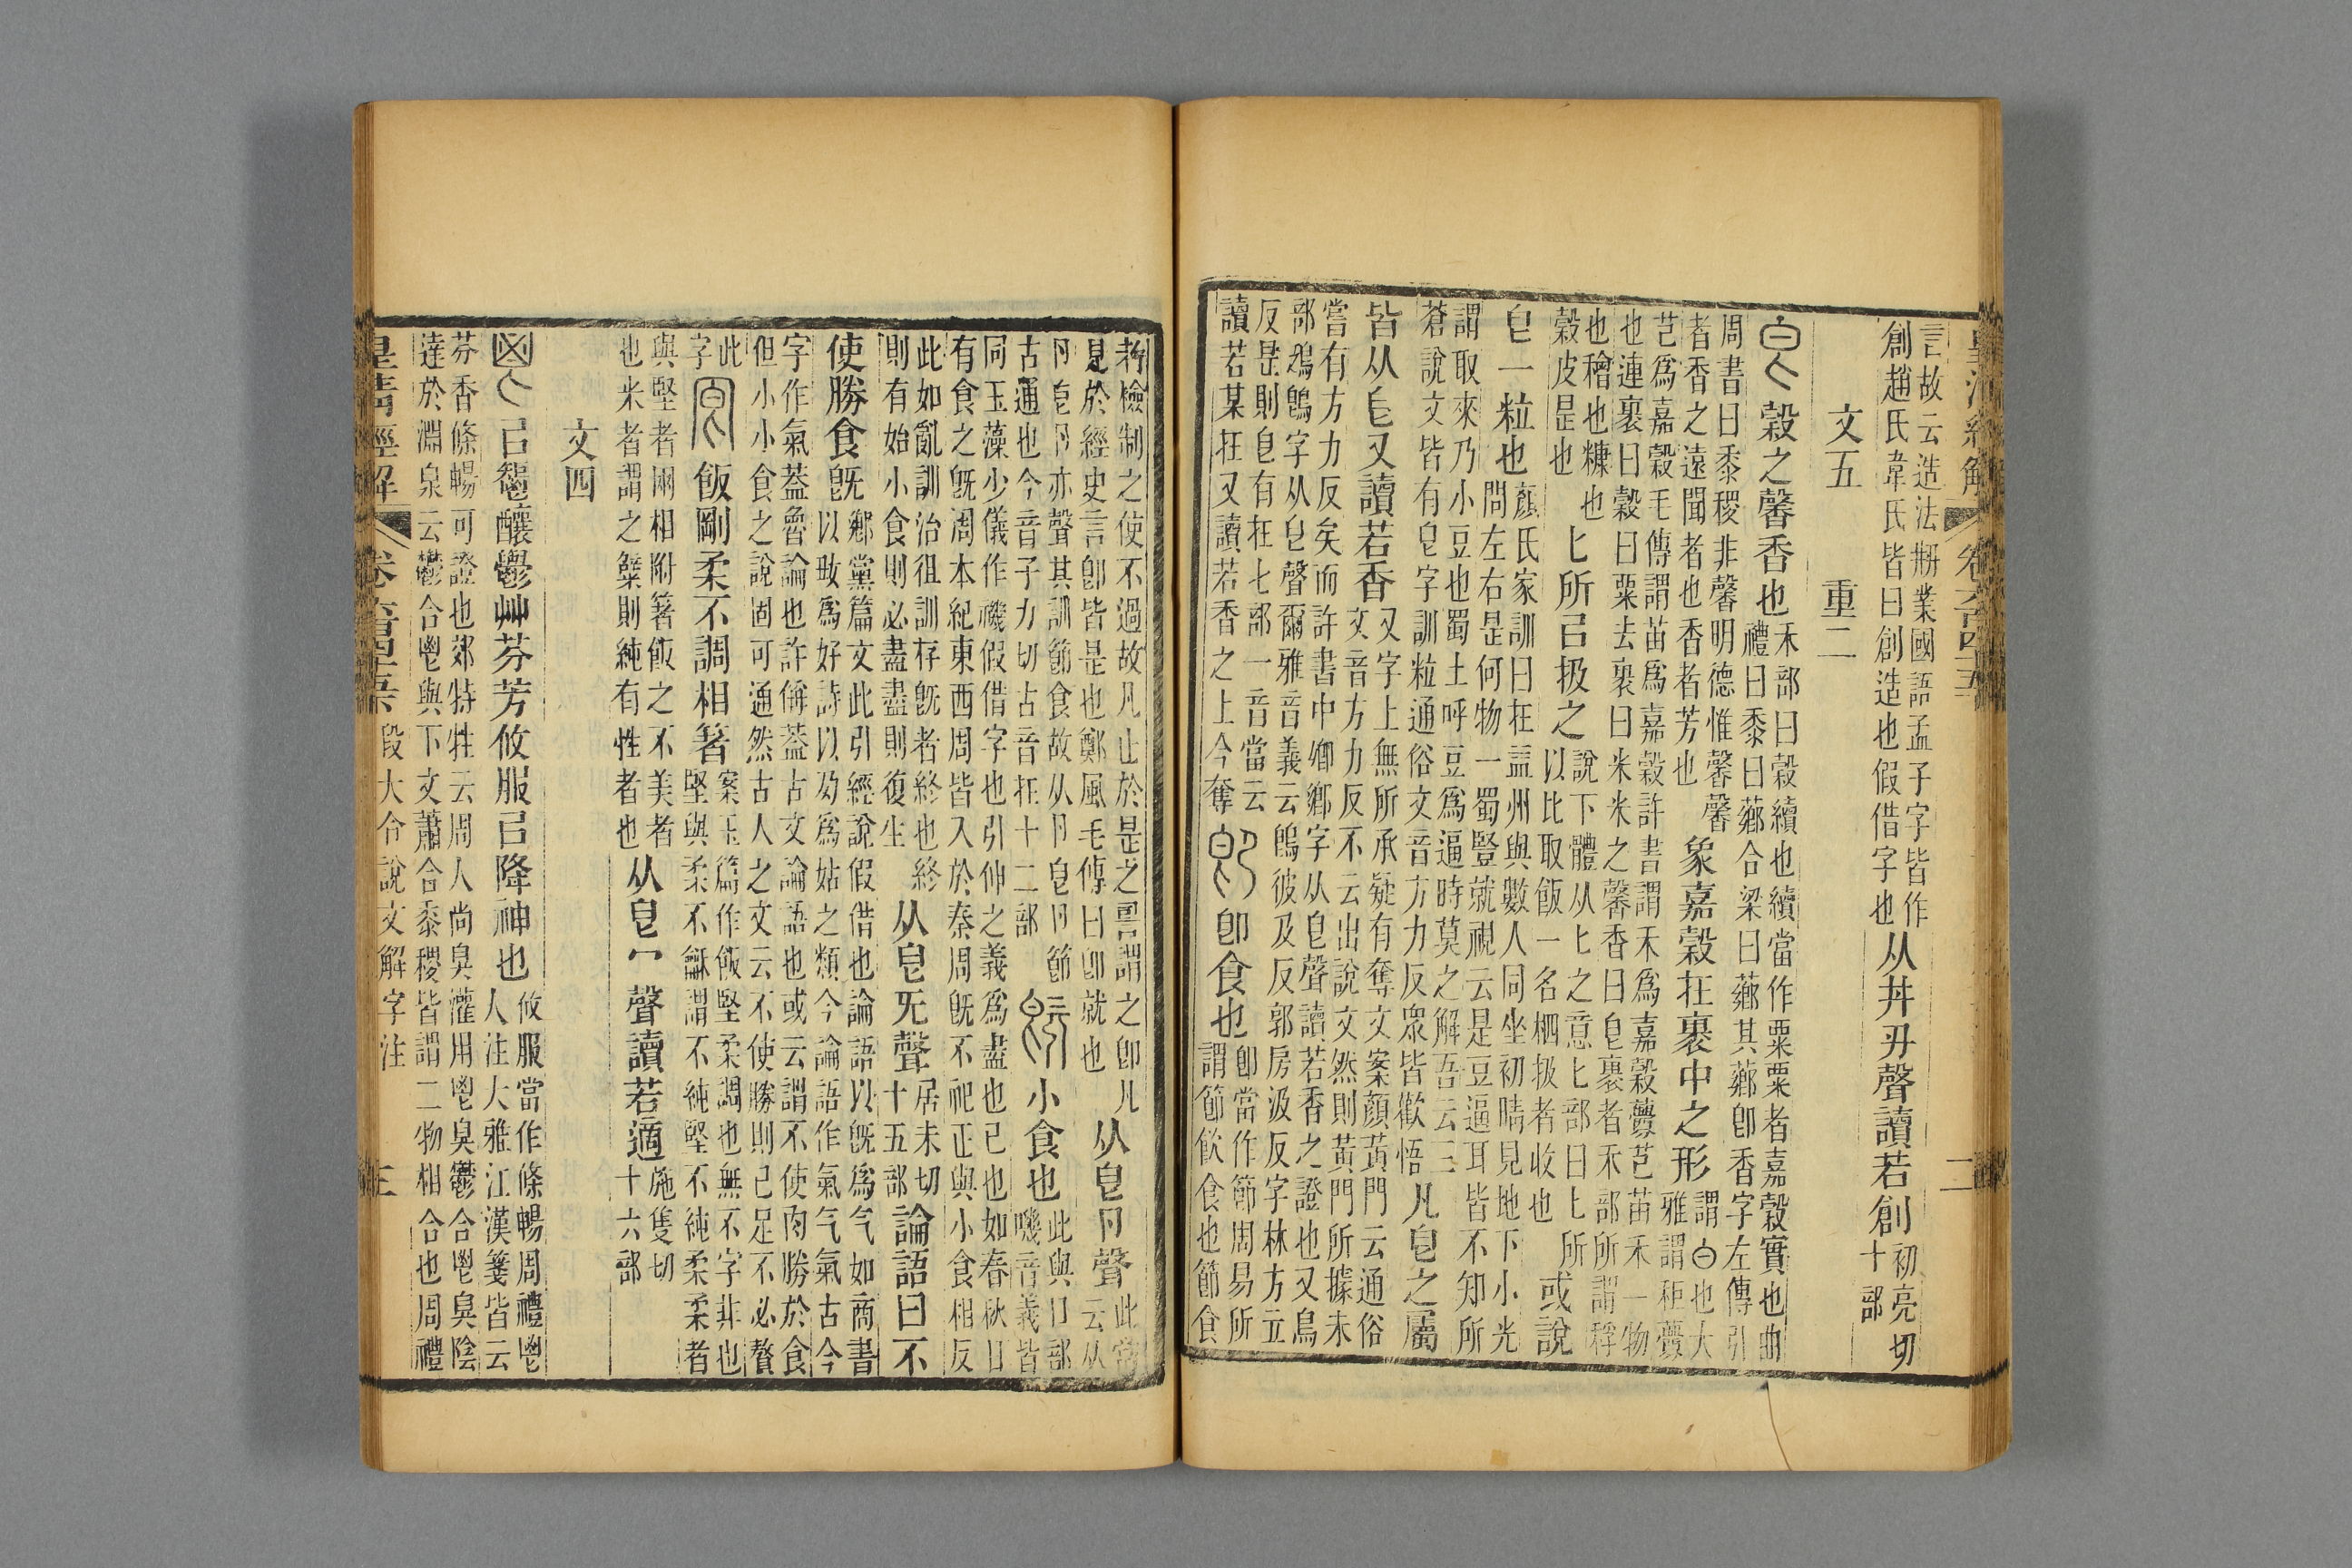 皇清經解 卷六百四十五 二
言故云造法刱業國語孟子字皆作創趙氏韋氏皆曰創造也假借字也从井刅聲讀若創初亮切十部
文五 重二
皀穀之馨香也禾部曰穀續也續當作粟粟者嘉穀實也曲禮曰黍曰薌合梁曰薌其薌卽香字左傳引
周書曰黍稷非馨明德惟馨馨者香之遠聞者也香者芳也象嘉穀在裹中之形謂白也大雅謂秬虋
芑爲嘉穀毛傳謂苗爲嘉穀許書謂禾爲嘉穀虋芑苗禾一物也連裹曰穀曰粟去裹曰米米之馨香曰皀裹者禾部所謂稃
也穭也糠也穀皮是也匕所㠯扱之說下體从匕之意匕部曰匕所以比取飯一名柶扱者收也或說
皀一粒也顏氏家訓曰在益州與數人同坐初晴見地下小光問左右是何物一蜀豎就視云是豆逼耳皆不知所
謂取來乃小豆也蜀土呼豆爲逼時莫之解吾云三蒼說文皆有皀字訓粒通俗文音方力反眾皆歡悟凡皀之屬
皆从皀又讀若香又字上無所承疑有奪文案顏黃門云通俗文音方力反不云出說文然則黃門所據未
嘗有方力反矣而許書中鄉鄉字从皀聲讀若香之證也又鳥部鴔鵖字从皀聲爾雅音義云鵖彼及反郭房汲反字林方立
反是則皀有在七部一音當云讀若某在又讀若香之上今奪卽卽食也卽當作節周易所謂節飲食也節食
者檢制之使不過故凡止於是之䛐謂之卽凡見於經史言卽皆是也鄭風毛傳曰卽就也从皀卪聲此當云从
卪皀卪亦聲其訓節食故从卪皀卪節古通也今音子力切古音在十二部旣小食也此與口部嘰音義皆
同玉藻少儀作禨假借字也引伸之義爲盡也已也如春秋日有食之旣周本紀東西周皆入於秦周旣不祀正與小食相反
此如亂訓治徂訓存旣者終也終則有始小食則必盡盡則復生从皀旡聲居未切十五部論語曰不
使勝食旣鄉黨篇文此引經說假借也論語以旣爲气如商書以㪝爲好詩以夃爲姑之類今論語作氣气氣古今
字作氣葢魯論也許偁葢古文論語也或云謂不使肉勝於食但小小食之說固可通然古人之文云不使勝則已足不必贅
此字冟飯剛柔不調相箸案玉篇作飯堅柔調也無不字非也堅與柔不龢謂不純堅不純柔柔者
與堅者兩相附箸飯之不美者也米者謂之糪則純有性者也从皀冖聲讀若適施隻切十六部
文四
鬯㠯秬釀鬱艸芬芳攸服㠯降神也攸服當作條暢周禮鬯人注大雅江漢箋皆云
芬香條暢可證也郊特牲云周人尚臭灌用鬯臭鬱合鬯臭陰達於淵泉云鬱合鬯與下文蕭合黍稷皆謂二物相合也周禮
皇清經解 卷六百四十五 段大令說文解字注 三